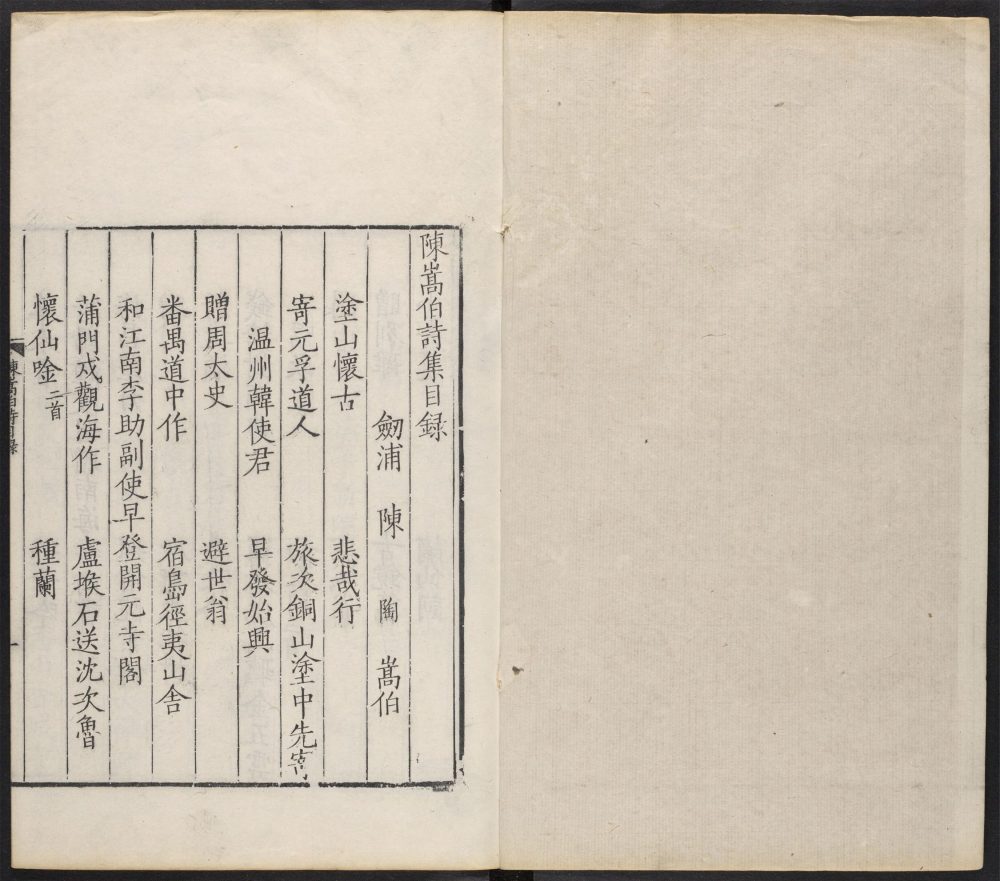 陳嵩伯詩集目録
劒浦 陳 陶 嵩伯
塗山懷古 悲哉行
寄元孚道人 旅次銅山塗中先寄
温州韓使君 早發始興
贈周太史 避世翁
番禺道中作 宿島徑夷山舍
和江南李助副使早登開元寺閣
蒲門戍觀海作 盧堠石送沈次魯
懷仙唫二首 種蘭
陳嵩伯詩目録
一